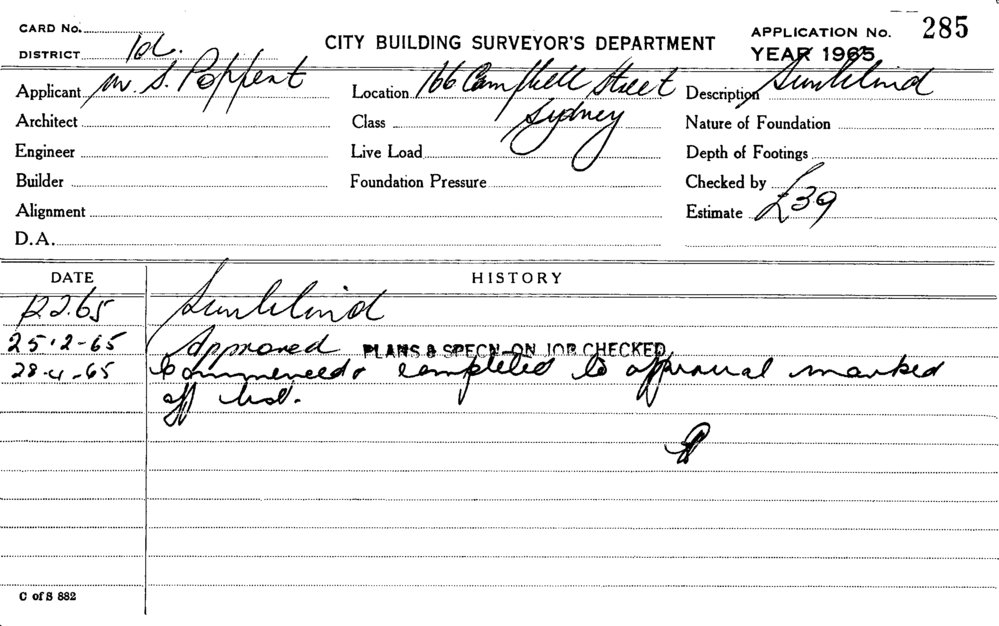 CARD No.
APPLICATION No. 285
DISTRICT
CITY BUILDING SURVEYOR'S DEPARTMENT
YEAR 1965
Applicant M. S. Poppent
Location 166 Campbell Street
Sydney
Description Sunblind
Architect
Class
Nature of Foundation
Engineer
Live Load
Depth of Footings
Builder
Foundation Pressure
Checked by
Alignment
Estimate £39
D.A.
DATE HISTORY
12.2.65 Sunblind
25.2-65 Approved PLANS & SPECN-ON JOB CHECKED
28-4-65 Commenced & completed to approval marked
off list.
C of S 882